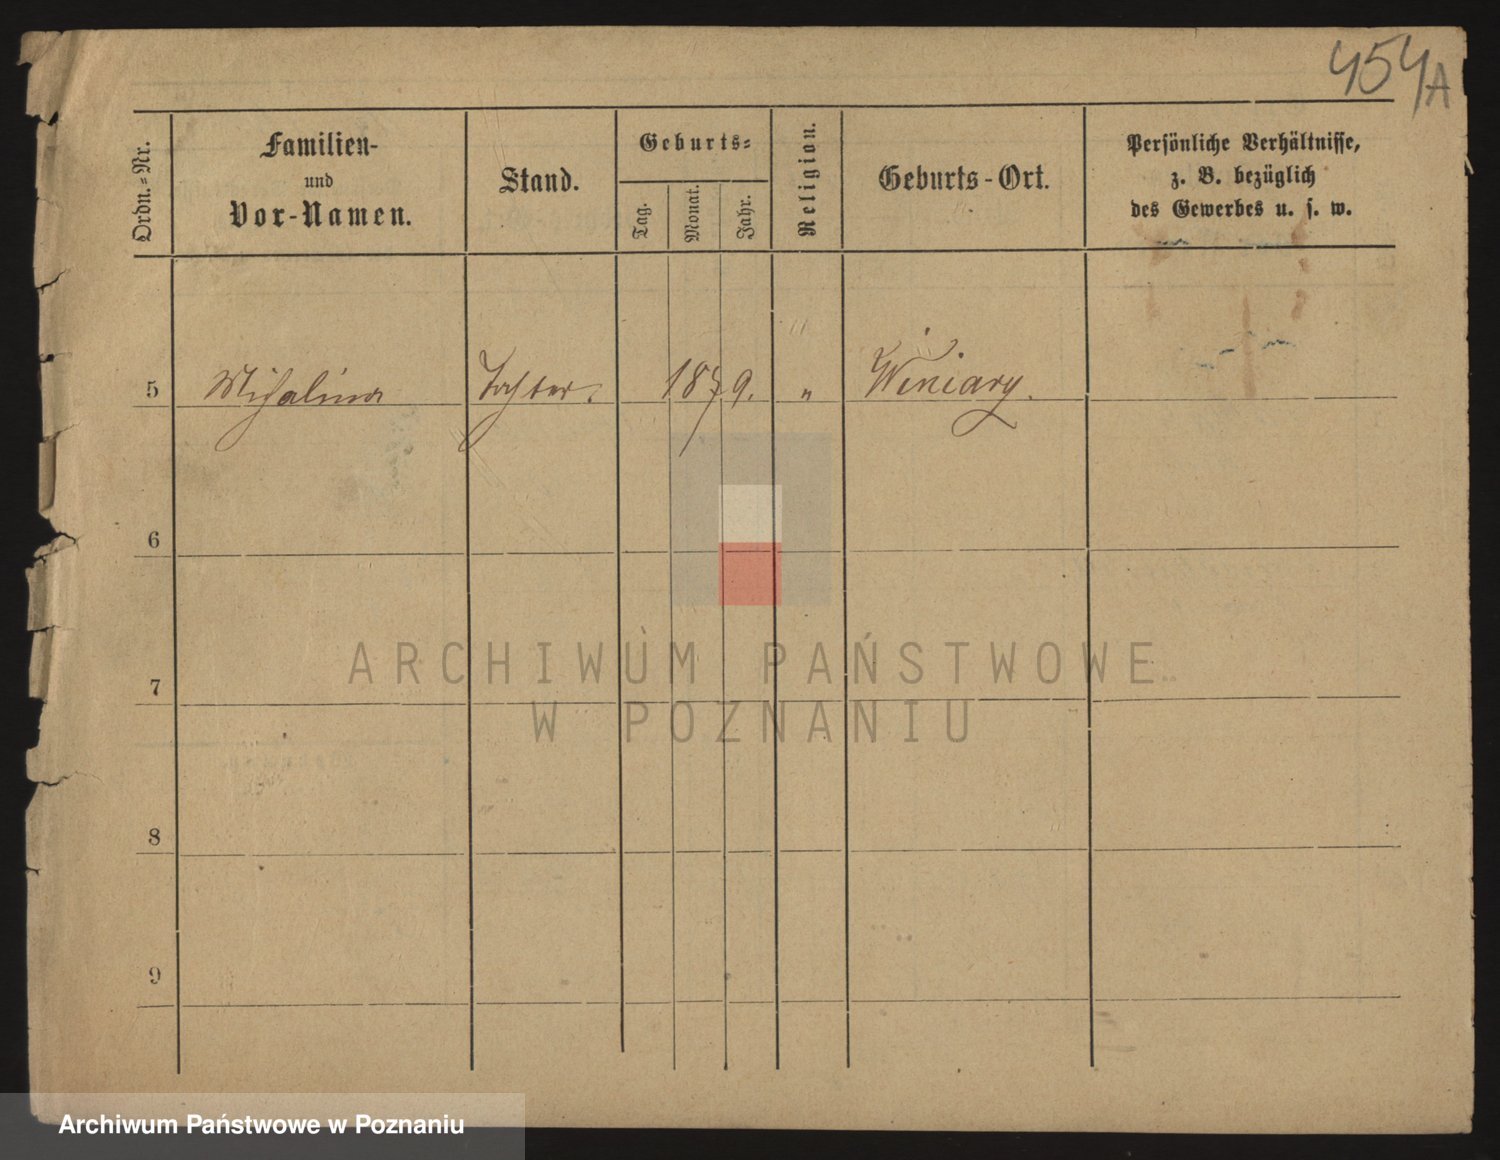 454A
Ordn.-Nr.
Familien-
und
Vor-Namen.
Stand.
Geburts-
Tag.
Monat.
Jahr.
Religion.
Geburts-Ort.
Persönliche Verhältnisse,
z. B. bezüglich
des Gewerbes u. s. w.
5 Michalina Tochter. 1879. " Winiary.
6
7
8
9
ARCHIWUM PAŃSTWOWE
W POZNANIU
Archiwum Państwowe w Poznaniu